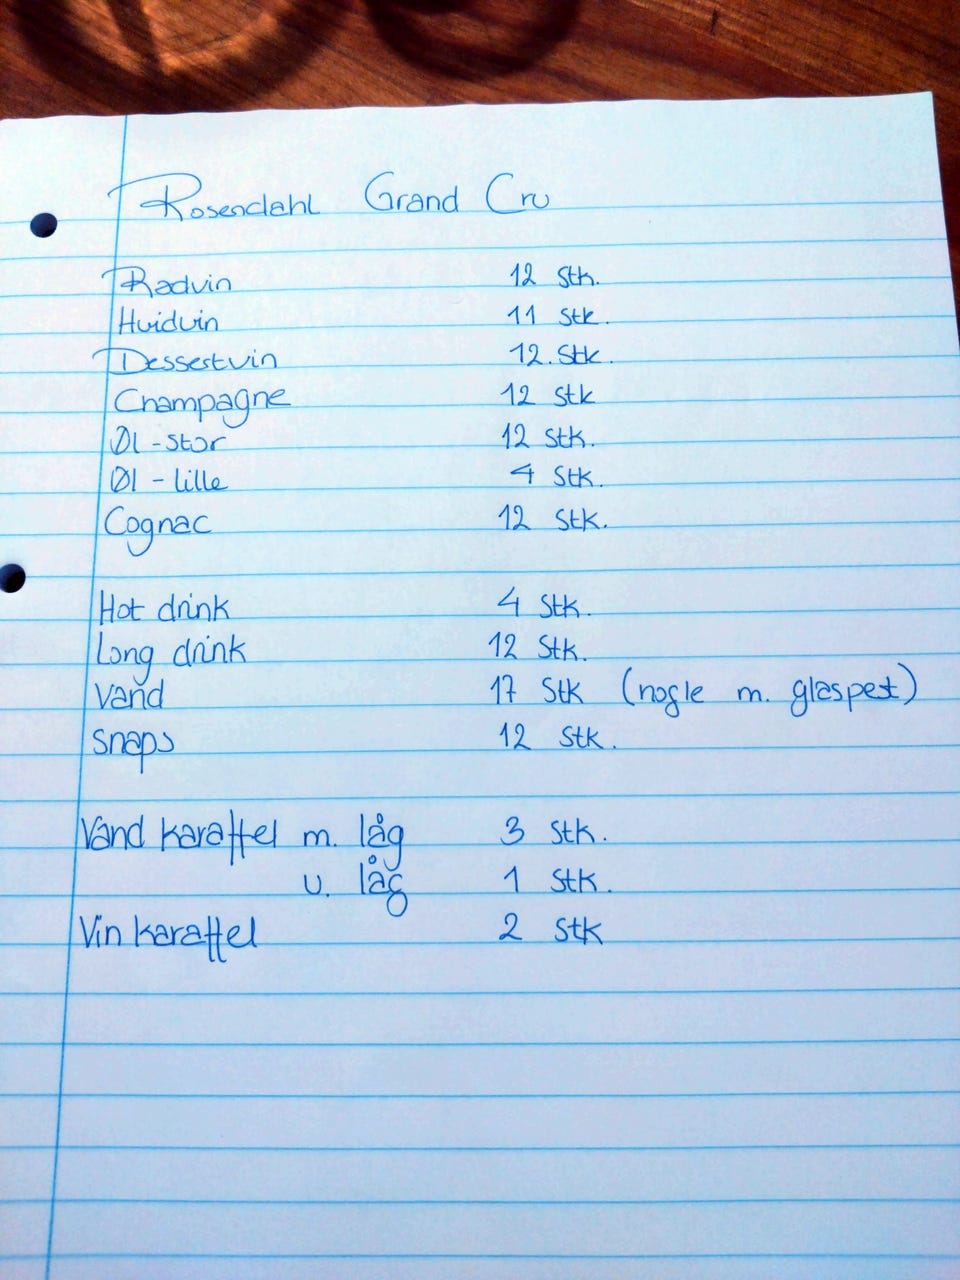 Rosendahl Grand Cru
Rødvin 12 stk.
Hvidvin 11 stk.
Dessertvin 12. stk.
Champagne 12 stk
Øl - stor 12 stk.
Øl - lille 4 stk.
Cognac 12 stk.
Hot drink 4 stk.
Long drink 12 stk.
Vand 17 stk (nogle m. glaspest)
Snaps 12 stk.
Vand karaffel m. låg 3 stk.
u. låg 1 stk.
Vin karaffel 2 stk